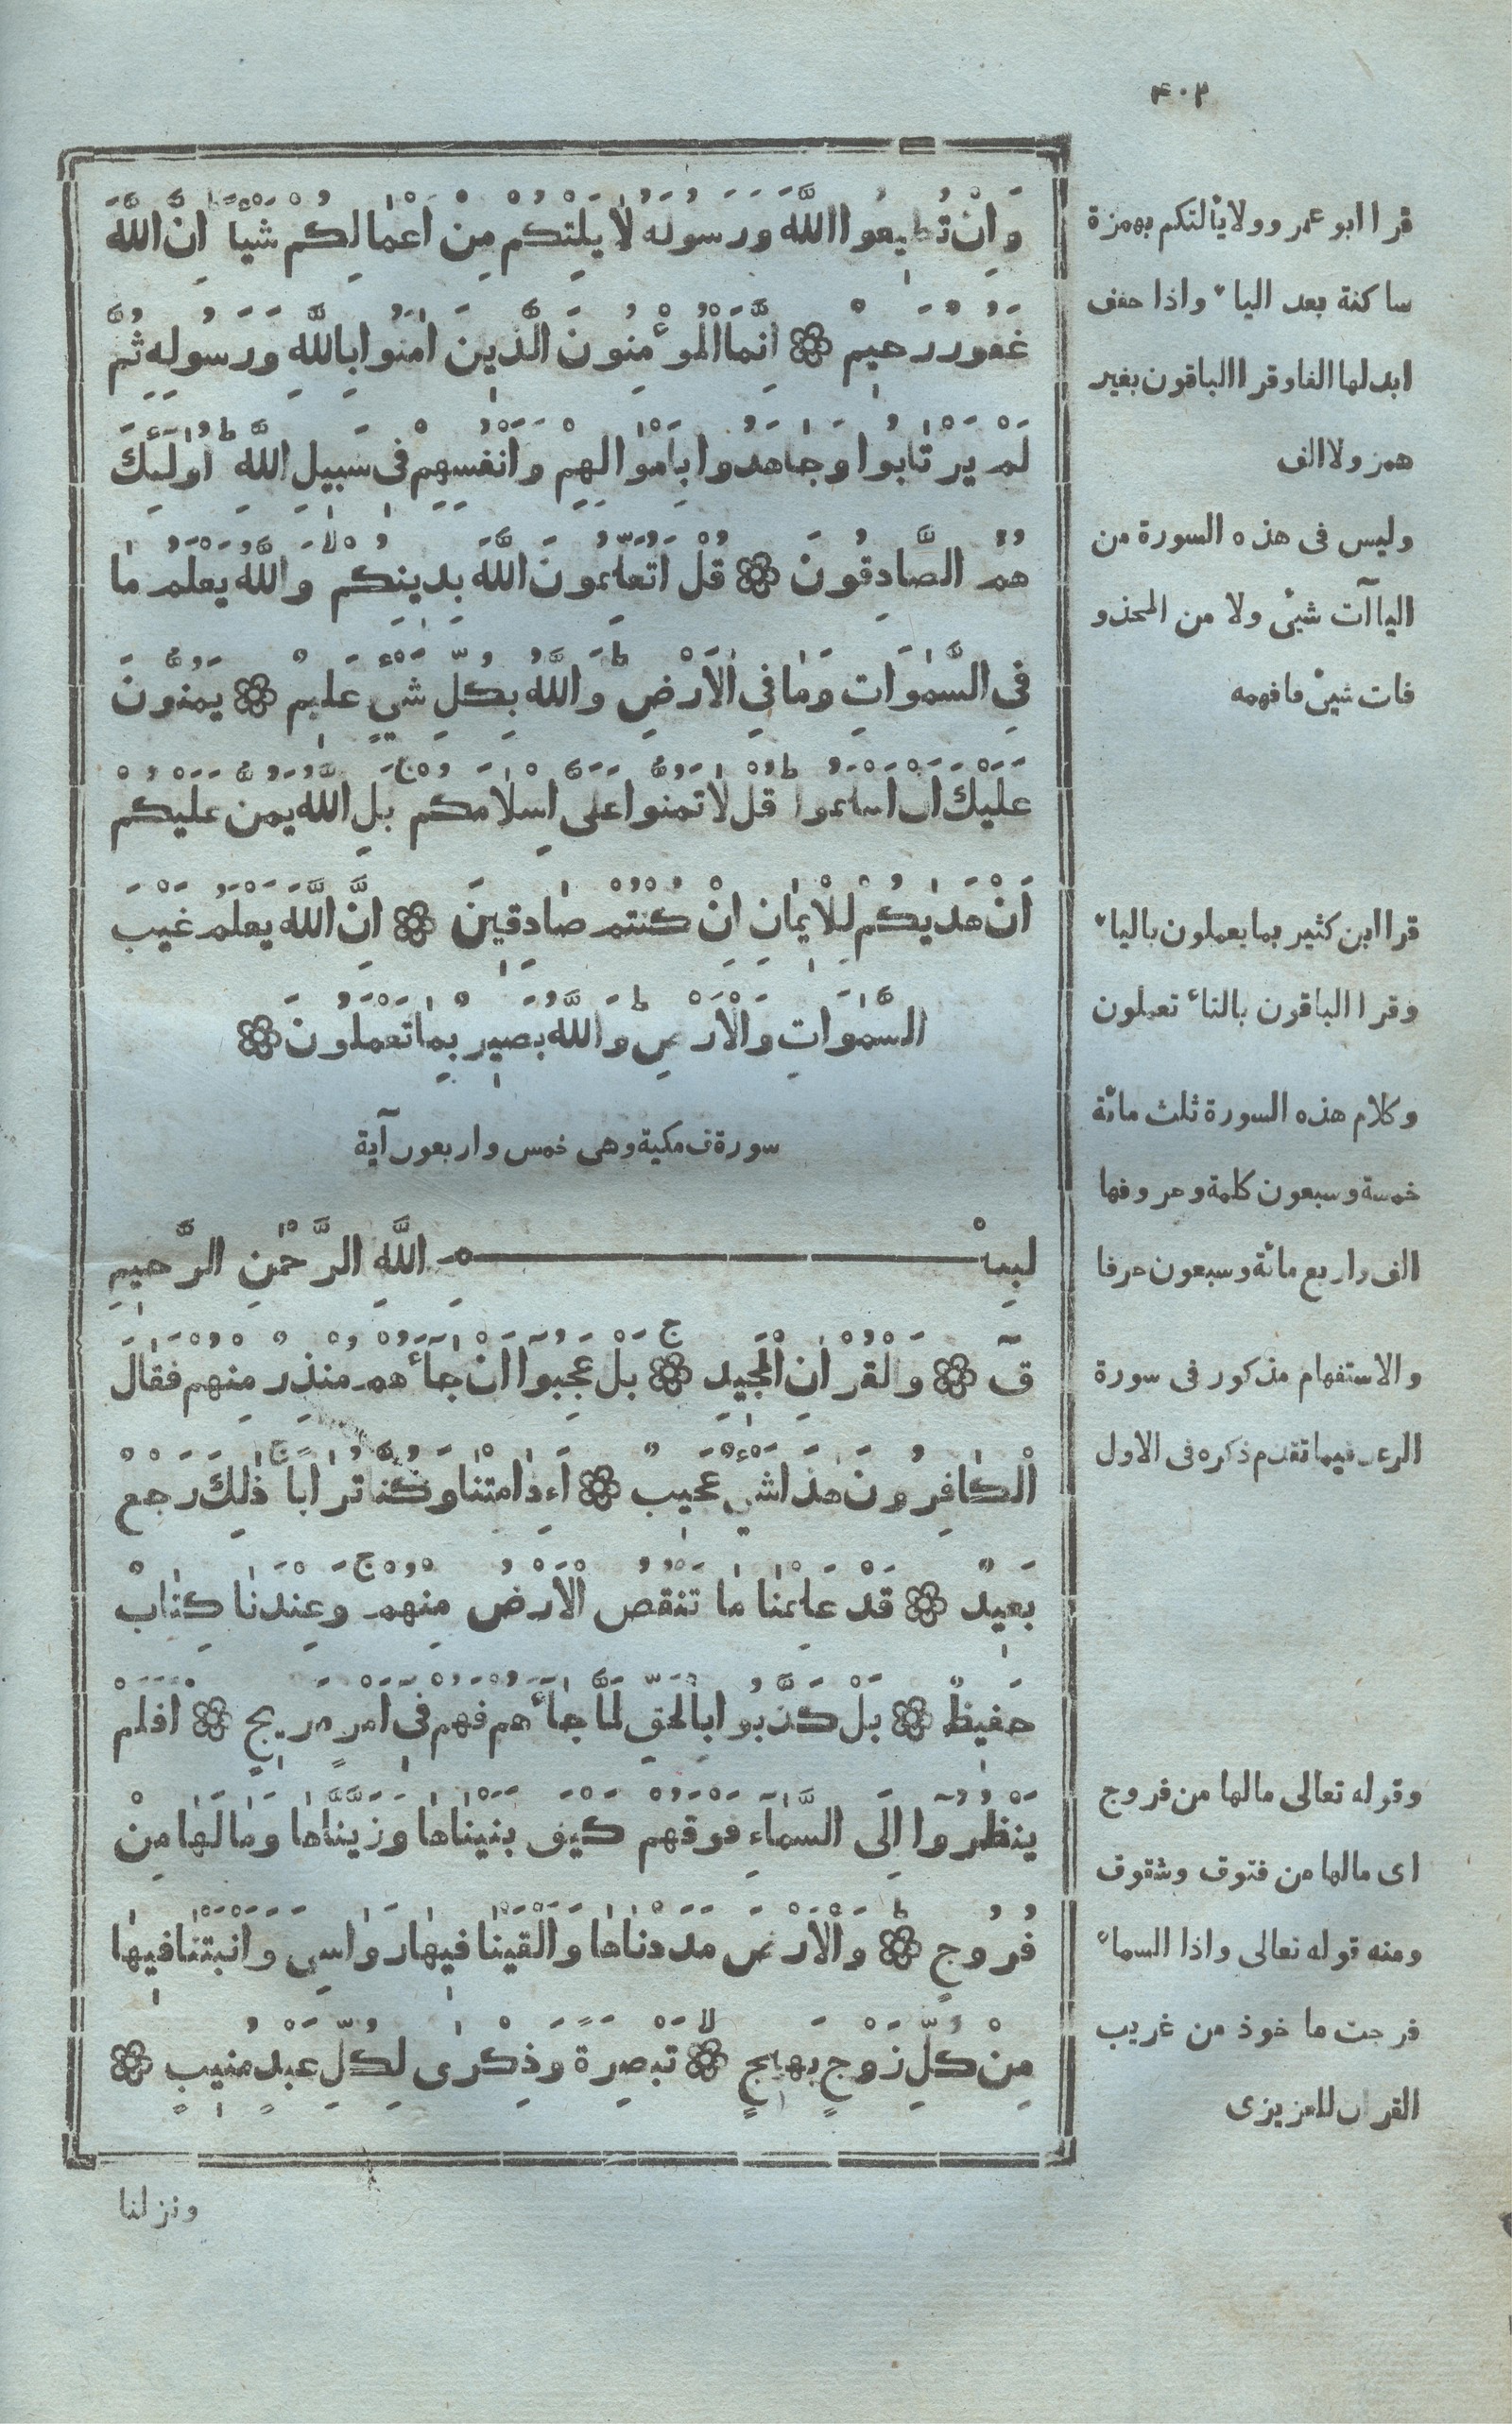 ۴۰۲
وَاِنْ تُطِيعُوا اللَّهَ وَرَسُولَهُ لَا يَلِتْكُمْ مِنْ اَعْمَالِكُمْ شَيْئًا ط اِنَّ اللَّهَ
غَفُورٌ رَحِيمٌ ۞ اِنَّمَا الْمُؤْمِنُونَ الَّذِينَ اٰمَنُوا بِاللَّهِ وَرَسُولِهِ ثُمَّ
لَمْ يَرْتَابُوا وَجَاهَدُوا بِاَمْوَالِهِمْ وَاَنْفُسِهِمْ فِى سَبِيلِ اللَّهِ ط اُولٰٓئِكَ
هُمُ الصَّادِقُونَ ۞ قُلْ اَتُعَلِّمُونَ اللَّهَ بِدِينِكُمْ وَاللَّهُ يَعْلَمُ مَا
فِى السَّمٰوَاتِ وَمَا فِى الْاَرْضِ ط وَاللَّهُ بِكُلِّ شَيْءٍ عَلِيمٌ ۞ يَمُنُّونَ
عَلَيْكَ اَنْ اَسْلَمُوا ط قُلْ لَا تَمُنُّوا عَلَىَّ اِسْلَامَكُمْ ج بَلِ اللَّهُ يَمُنُّ عَلَيْكُمْ
اَنْ هَدٰيكُمْ لِلْاِيمَانِ اِنْ كُنْتُمْ صَادِقِينَ ۞ اِنَّ اللَّهَ يَعْلَمُ غَيْبَ
السَّمٰوَاتِ وَالْاَرْضِ ط وَاللَّهُ بَصِيرٌ بِمَا تَعْمَلُونَ ۞
سورة ق مكية وهى خمس واربعون آية
بِسْمِ اللَّهِ الرَّحْمٰنِ الرَّحِيمِ
قٓ ۞ وَالْقُرْاٰنِ الْمَجِيدِ ج ۞ بَلْ عَجِبُوٓا اَنْ جَآءَهُمْ مُنْذِرٌ مِنْهُمْ فَقَالَ
الْكَافِرُونَ هٰذَا شَيْءٌ عَجِيبٌ ۞ اَءِذَا مِتْنَا وَكُنَّا تُرَابًا ج ذٰلِكَ رَجْعٌ
بَعِيدٌ ۞ قَدْ عَلِمْنَا مَا تَنْقُصُ الْاَرْضُ مِنْهُمْ ج وَعِنْدَنَا كِتَابٌ
حَفِيظٌ ۞ بَلْ كَذَّبُوا بِالْحَقِّ لَمَّا جَآءَهُمْ فَهُمْ فِىٓ اَمْرٍ مَرِيجٍ ۞ اَفَلَمْ
يَنْظُرُوٓا اِلَى السَّمَآءِ فَوْقَهُمْ كَيْفَ بَنَيْنَاهَا وَزَيَّنَّاهَا وَمَا لَهَا مِنْ
فُرُوجٍ ط ۞ وَالْاَرْضَ مَدَدْنَاهَا وَاَلْقَيْنَا فِيهَا رَوَاسِىَ وَاَنْبَتْنَا فِيهَا
مِنْ كُلِّ زَوْجٍ بَهِيجٍ لا ۞ تَبْصِرَةً وَذِكْرٰى لِكُلِّ عَبْدٍ مُنِيبٍ ۞
ونزلنا
قرا ابو عمرو ولا يألتكم بهمزة
ساكنة بعد الياء واذا خفف
ابدلها الفا وقرا الباقون بغير
همز ولا الف
وليس فى هذه السورة من
الياآت شيئ ولا من المحذو
فات شيئ فافهمه
قرا ابن كثير بما يعملون بالياء
وقرا الباقون بالتاء تعملون
وكلام هذه السورة ثلث مائة
خمسة وسبعون كلمة وحروفها
الف واربع مائة وسبعون حرفا
والاستفهام مذكور فى سورة
الرعد فيما تقدم ذكره فى الاول
وقوله تعالى مالها من فروج
اى مالها من فتوق وشقوق
ومنه قوله تعالى واذا السماء
فرجت ماخوذ من غريب
القران للعزيزى